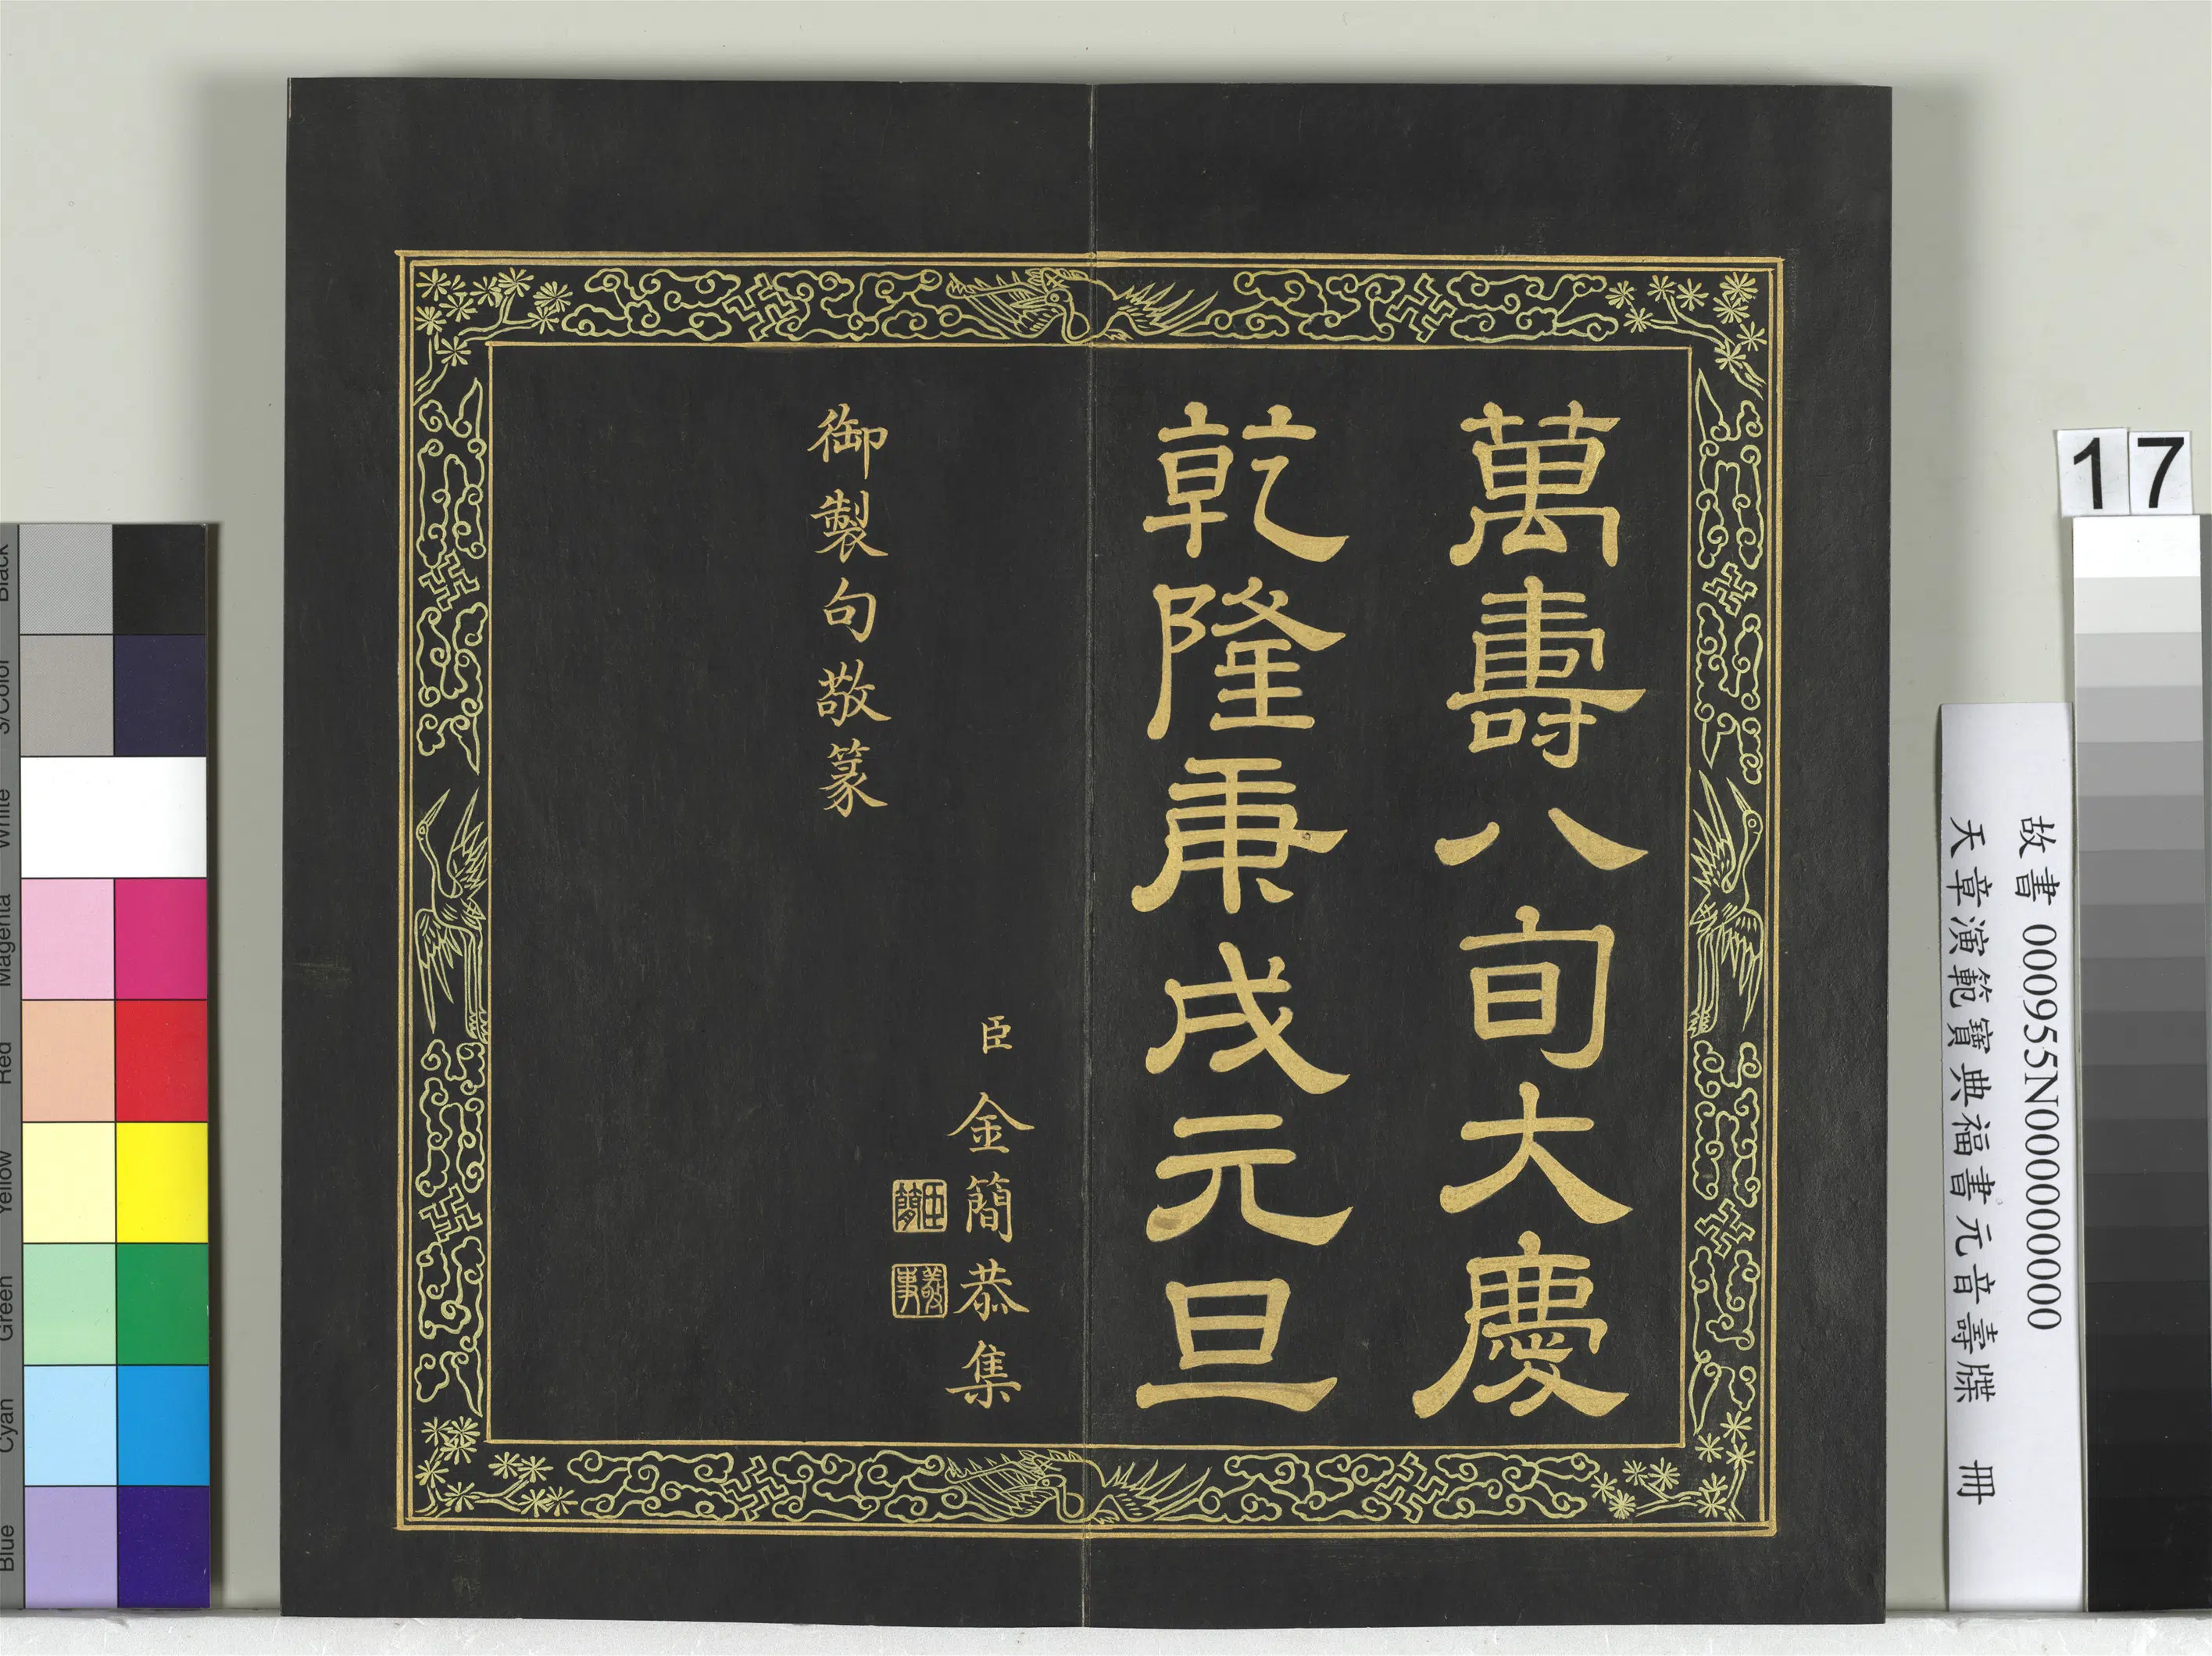 萬壽八旬大慶
乾隆庚戌元旦
臣金簡恭集
御製句敬篆
臣簡
敬事
17
故書 000955N000000000
天章演範寶典福書元音壽牒 冊
Black
3/Color
White
Magenta
Red
Yellow
Green
Cyan
Blue